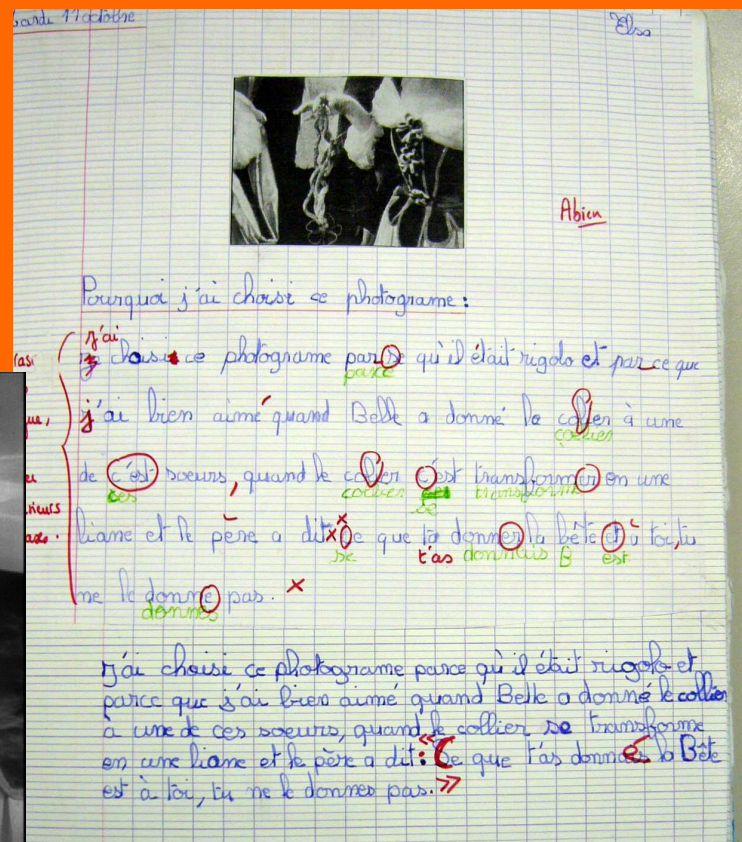 11 octobre
Elsa
A bien
Pourquoi j'ai choisi ce photograme :
j'ai
choisi ce photograme par se qu'il était rigolo et par ce que
parce
j'ai bien aimé quand Belle a donné le collier à une
collier
de c'est soeurs, quand le collier c'est transformer en une
ces collier se transforme
liane et le père a dit ce que ta donner la bête et à toi, tu
se t'as donnais B est
ne le donne pas.
donnes
J'ai choisi ce photograme parce qu'il était rigolo et
parce que j'ai bien aimé quand Belle a donné le collier
à une de ces soeurs, quand le collier se transforme
en une liane et le père a dit : « Ce que t'as donné la Bête
est à toi, tu ne le donnes pas. »